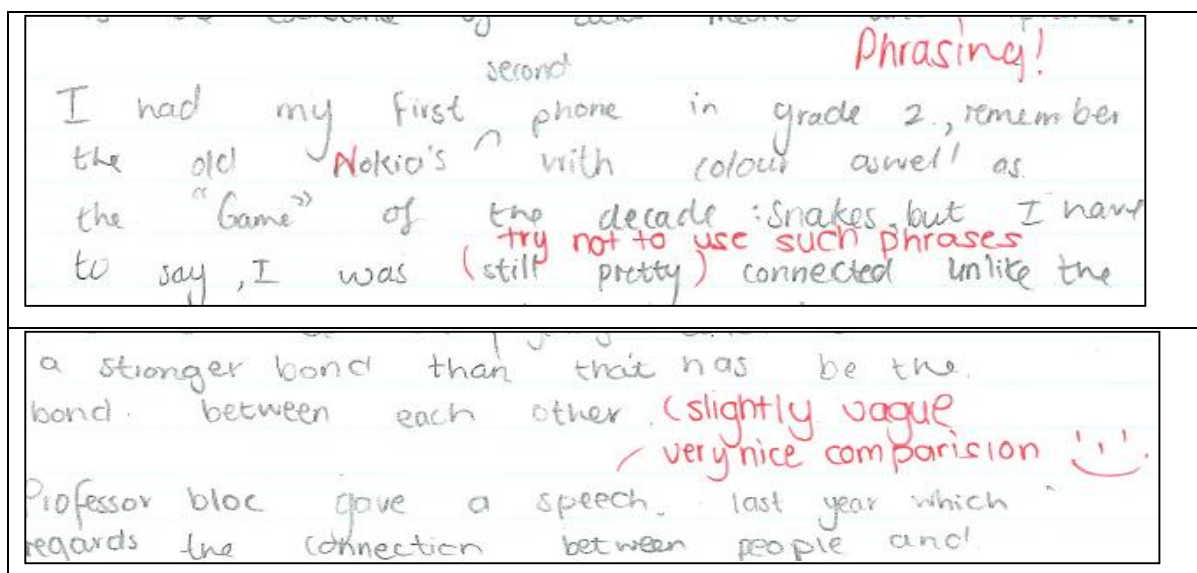 Phrasing!
second
I had my first ^ phone in grade 2., remember
the old Nokia's with colour aswell as
the "Game" of the decade : Snakes, but I have
try not to use such phrases
to say, I was (still pretty) connected unlike the
a stronger bond than that has be the.
bond. between each other. (slightly vague
very nice comparision
Professor bloc gave a speech. last year which
regards the connection between people and